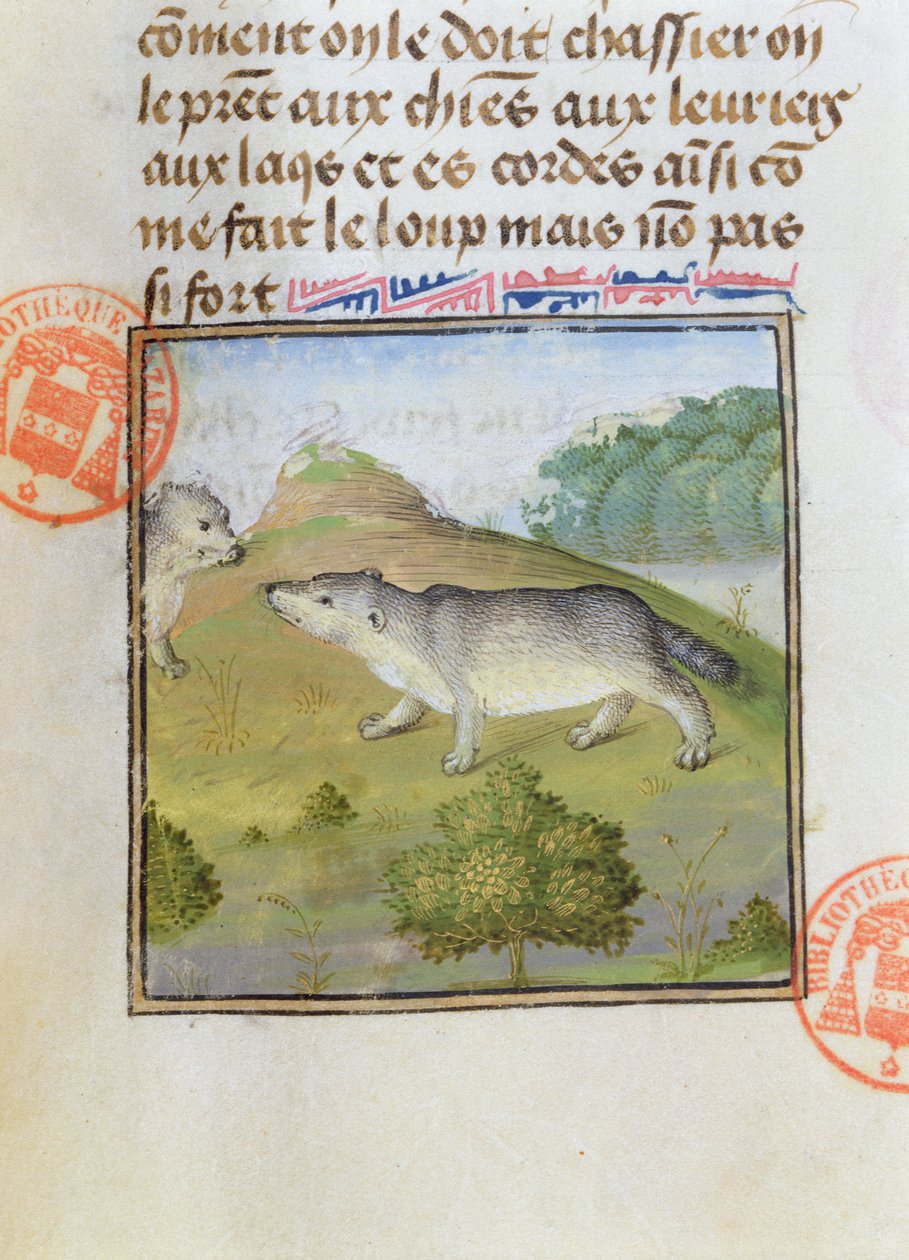 cōment on le doit chassier on
le prēt aux chiēs aux leuriers
aux laqs et es cordes aīsi cō
me fait le loup mais nō pas
si fort
BIBLIOTHEQUE